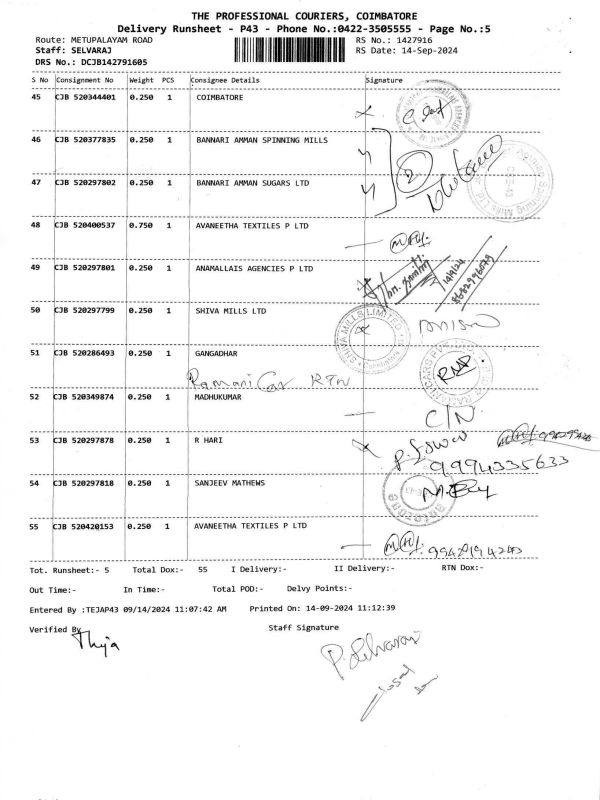 THE PROFESSIONAL COURIERS, COIMBATORE
Delivery Runsheet - P43 - Phone No.:0422-3505555 - Page No.:5
Route: METUPALAYAM ROAD RS No.: 1427916
Staff: SELVARAJ RS Date: 14-Sep-2024
DRS No.: DCJB142791605
S No Consignment No Weight PCS Consignee Details Signature
45 CJB 520344401 0.250 1 COIMBATORE
46 CJB 520377835 0.250 1 BANNARI AMMAN SPINNING MILLS
47 CJB 520297802 0.250 1 BANNARI AMMAN SUGARS LTD
48 CJB 520400537 0.750 1 AVANEETHA TEXTILES P LTD
49 CJB 520297801 0.250 1 ANAMALLAIS AGENCIES P LTD
14/9/24
8682996079
50 CJB 520297799 0.250 1 SHIVA MILLS LTD
SHIVA MILLS LIMITED
51 CJB 520286493 0.250 1 GANGADHAR
Ramani Car RTN
52 CJB 520349874 0.250 1 MADHUKUMAR
C/N
53 CJB 520297878 0.250 1 R HARI
9994335633
54 CJB 520297818 0.250 1 SANJEEV MATHEWS
55 CJB 520420153 0.250 1 AVANEETHA TEXTILES P LTD
Tot. Runsheet:- 5 Total Dox:- 55 I Delivery:- II Delivery:- RTN Dox:-
Out Time:- In Time:- Total POD:- Delvy Points:-
Entered By :TEJAP43 09/14/2024 11:07:42 AM Printed On: 14-09-2024 11:12:39
Verified By Staff Signature